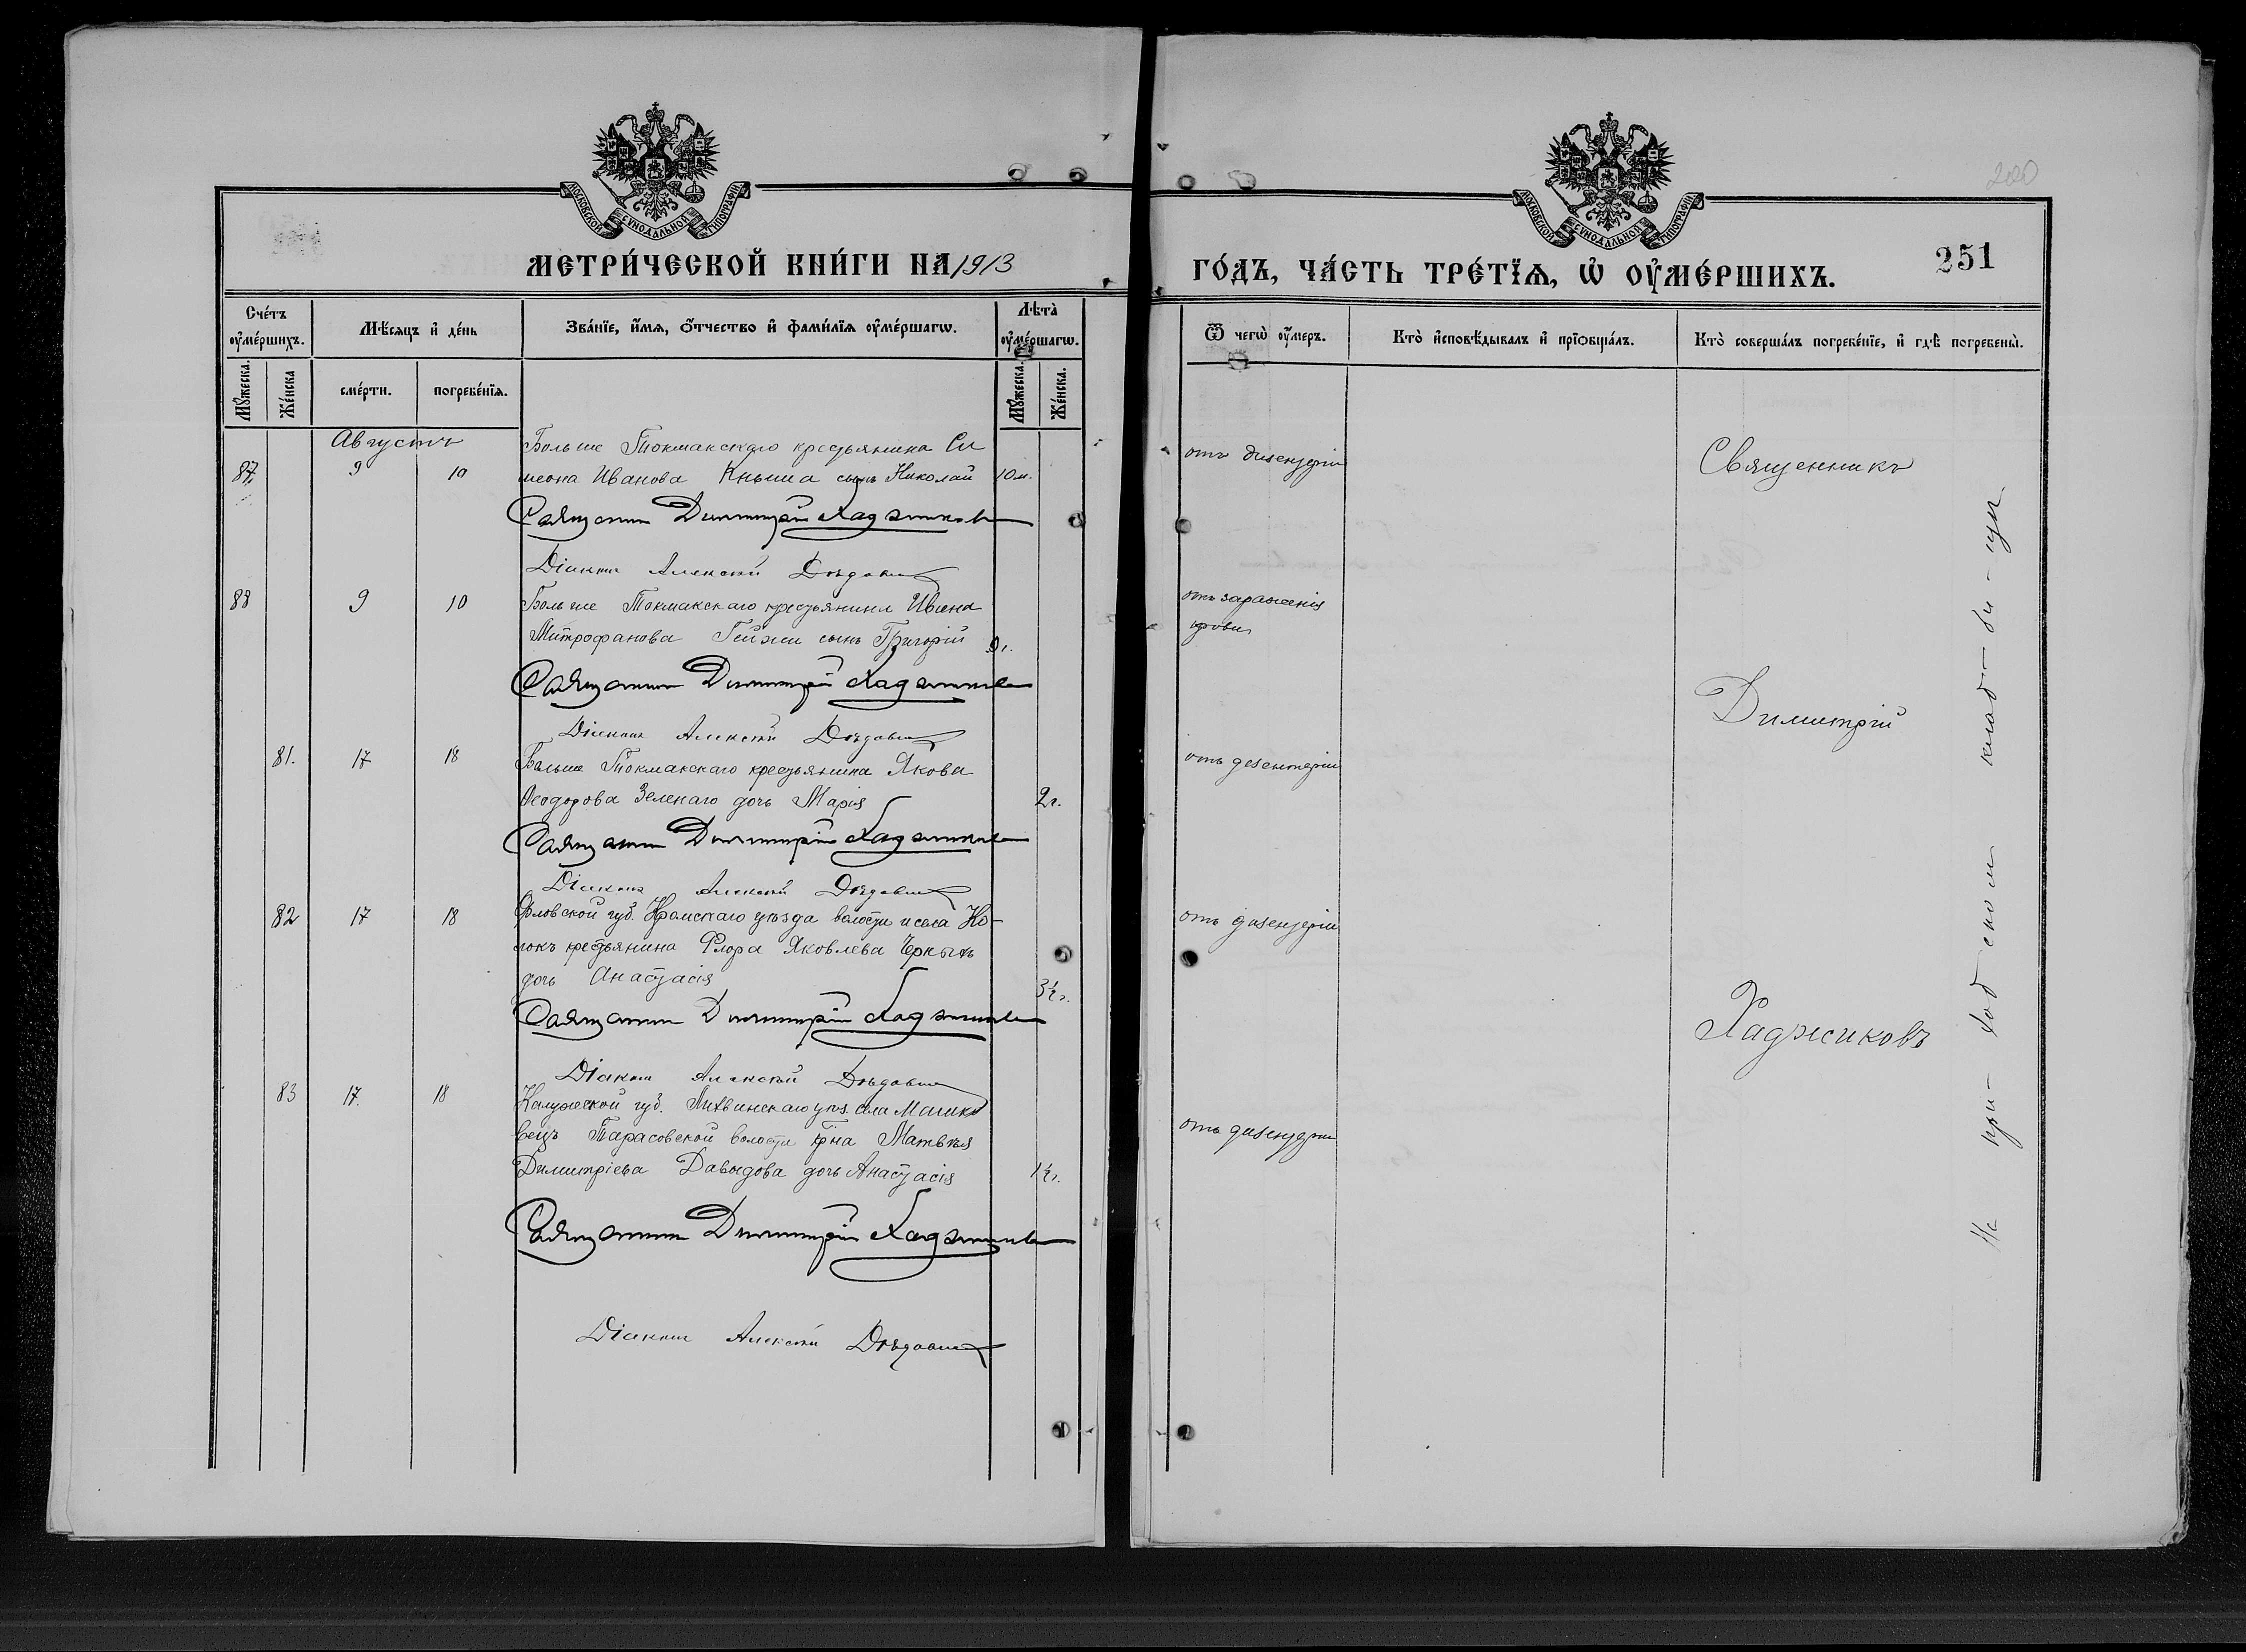 МОСКОВСКОЙ СѴНОДАЛЬНОЙ ТИПОГРАФІИ
МЕТРИ́ЧЕСКОЙ КНИ́ГИ НА 1913
Сче́тъ ᲂу҆ме́ршихъ.
Мѣ́сяцъ и҆ де́нь
Зва́нїе, и҆́мѧ, ѻ҆́тчество и҆ фами́лїѧ ᲂу҆ме́ршагѡ.
Лѣ́та ᲂу҆ме́ршагѡ.
Мꙋ́жеска.
Же́нска
сме́рти.
погребе́нїѧ.
Мꙋ́жеска.
Же́нска.
Августъ
Больше Токмакскаго крестьянина Си
87 9 10 меона Иванова Кныша сынъ Николай 10 м.
Священник Димитрій Хаджиковъ
Діаконъ Алексѣй
88 9 10 Больше Токмакскаго крестьянина Ивана
Митрофанова сынъ Григорій 9 г.
Священник Димитрій Хаджиковъ
Діаконъ Алексѣй
81. 17 18 Больше Токмакскаго крестьянина Якова
Ѳеодорова Зеленаго дочь Марія 2 г.
Священник Димитрій Хаджиковъ
Діаконъ Алексѣй
82 17 18 Орловской губ. Кромскаго уѣзда волости и села Ко-
локъ крестьянина Флора Яковлева Черныхъ
дочь Анастасія 3½ г.
Священник Димитрій Хаджиковъ
Діаконъ Алексѣй
83 17. 18 Калужской губ. Лихвинскаго уѣз. села
Тарасовской волости кр̃на Матвѣя
Димитріева Давыдова дочь Анастасія 1½ г.
Священник Димитрій Хаджиковъ
Діаконъ Алексѣй
МОСКОВСКОЙ СѴНОДАЛЬНОЙ ТИПОГРАФІИ
200
251
ГО́ДЪ, ЧА́СТЬ ТРЕ́ТЇѦ, Ѡ҆ ᲂУ҆МЕ́РШИХЪ.
Ѿ чегѡ̀ ᲂу҆́меръ.
Кто̀ и҆сповѣ́дывалъ и҆ прїѡбща́лъ.
Кто̀ соверша́лъ погребе́нїе, и҆ гдѣ̀ погребены̀.
отъ дизентеріи
отъ зараженія
крови
отъ дезентеріи
отъ дизентеріи
отъ дизентеріи
Священникъ
Димитрій
Хаджиковъ
На при-